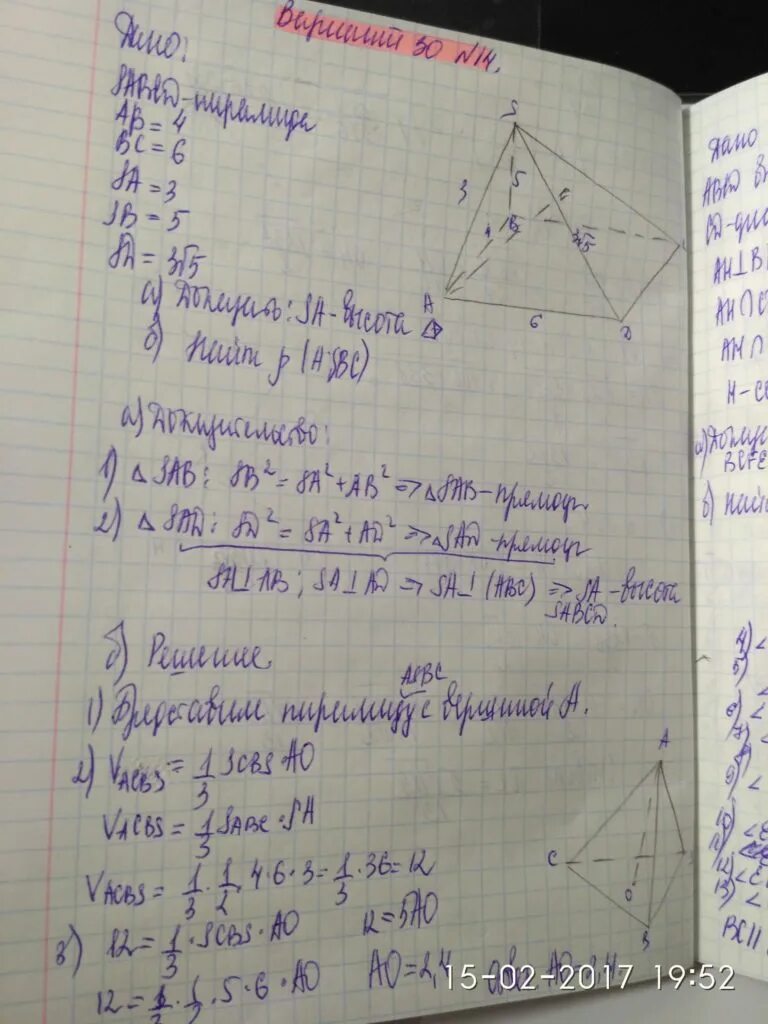 Вариант 30 №14.
Дано:
SABCD - пирамида
AB = 4
BC = 6
SA = 3
SB = 5
SD = 3√5
а) Доказать: SA - высота
б) Найти ρ (A; SBC)
S
3
5
4
B
3√5
A
6
D
а) Доказательство:
1) △ SAB: SB² = SA² + AB² ⇒ △SAB - прямоуг.
2) △ SAD: SD² = SA² + AD² ⇒ △SAD - прямоуг
SA⊥AB; SA⊥AD ⇒ SA⊥(ABC) ⇒ SA - высота
SABCD.
б) Решение
ASBC
1) Представим пирамиду с вершиной A.
2) V ACBS = 1/3 SCBS · AO
V ACBS = 1/3 SABC · SA
V ACBS = 1/3 · 1/2 · 4 · 6 · 3 = 1/3 · 36 = 12
3) 12 = 1/3 · SCBS · AO 12 = 5AO
12 = 1/3 · 1/2 · 5 · 6 · AO AO = 2,4
A
C
O
B
15-02-2017 19:52
Дано
ABCD
CD-
AH⊥B
AH∩C
AH∩
H-
а)
BCF
б)
4) <
5)
6) <
7)
9) <
10)
12) <
13) <
BC||